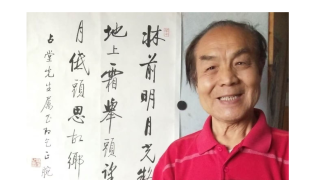 牀前明月光疑
地上霜舉頭望
月低頭思故鄉
堂先生